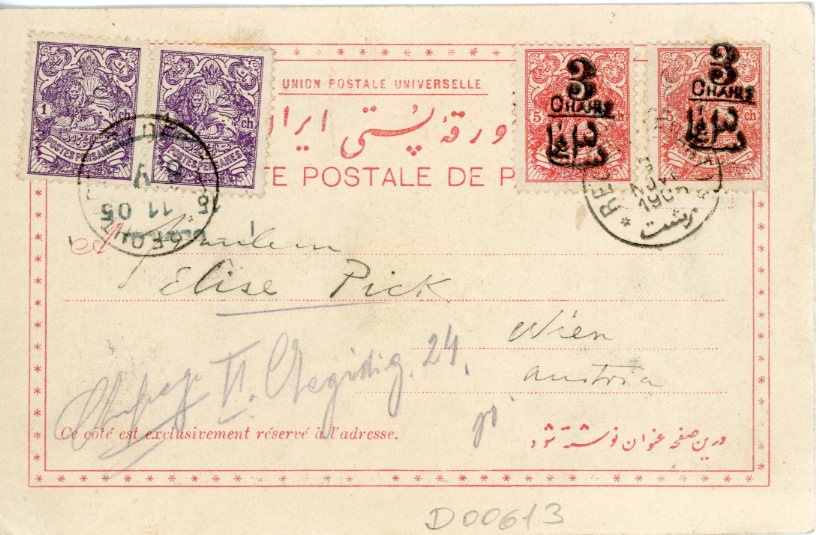 UNION POSTALE UNIVERSELLE
ورقهٔ پستی ایران
TE POSTALE DE P
1 ch
POSTES PERSANES
5
3
CHAHIS
3
CHAHIS
15 11 05
RE
NOV
1905
رشت
A Fräulein
Elise Pick
Wien
Austria
II. Aegidig. 24.
Ce côté est exclusivement réservé à l'adresse.
درین صفحه عنوان نوشته شود
D00613